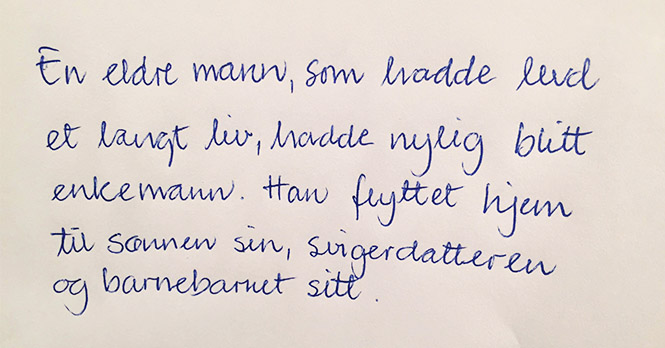 En eldre mann, som hadde levd
et langt liv, hadde nylig blitt
enkemann. Han flyttet hjem
til sønnen sin, svigerdatteren
og barnebarnet sitt.